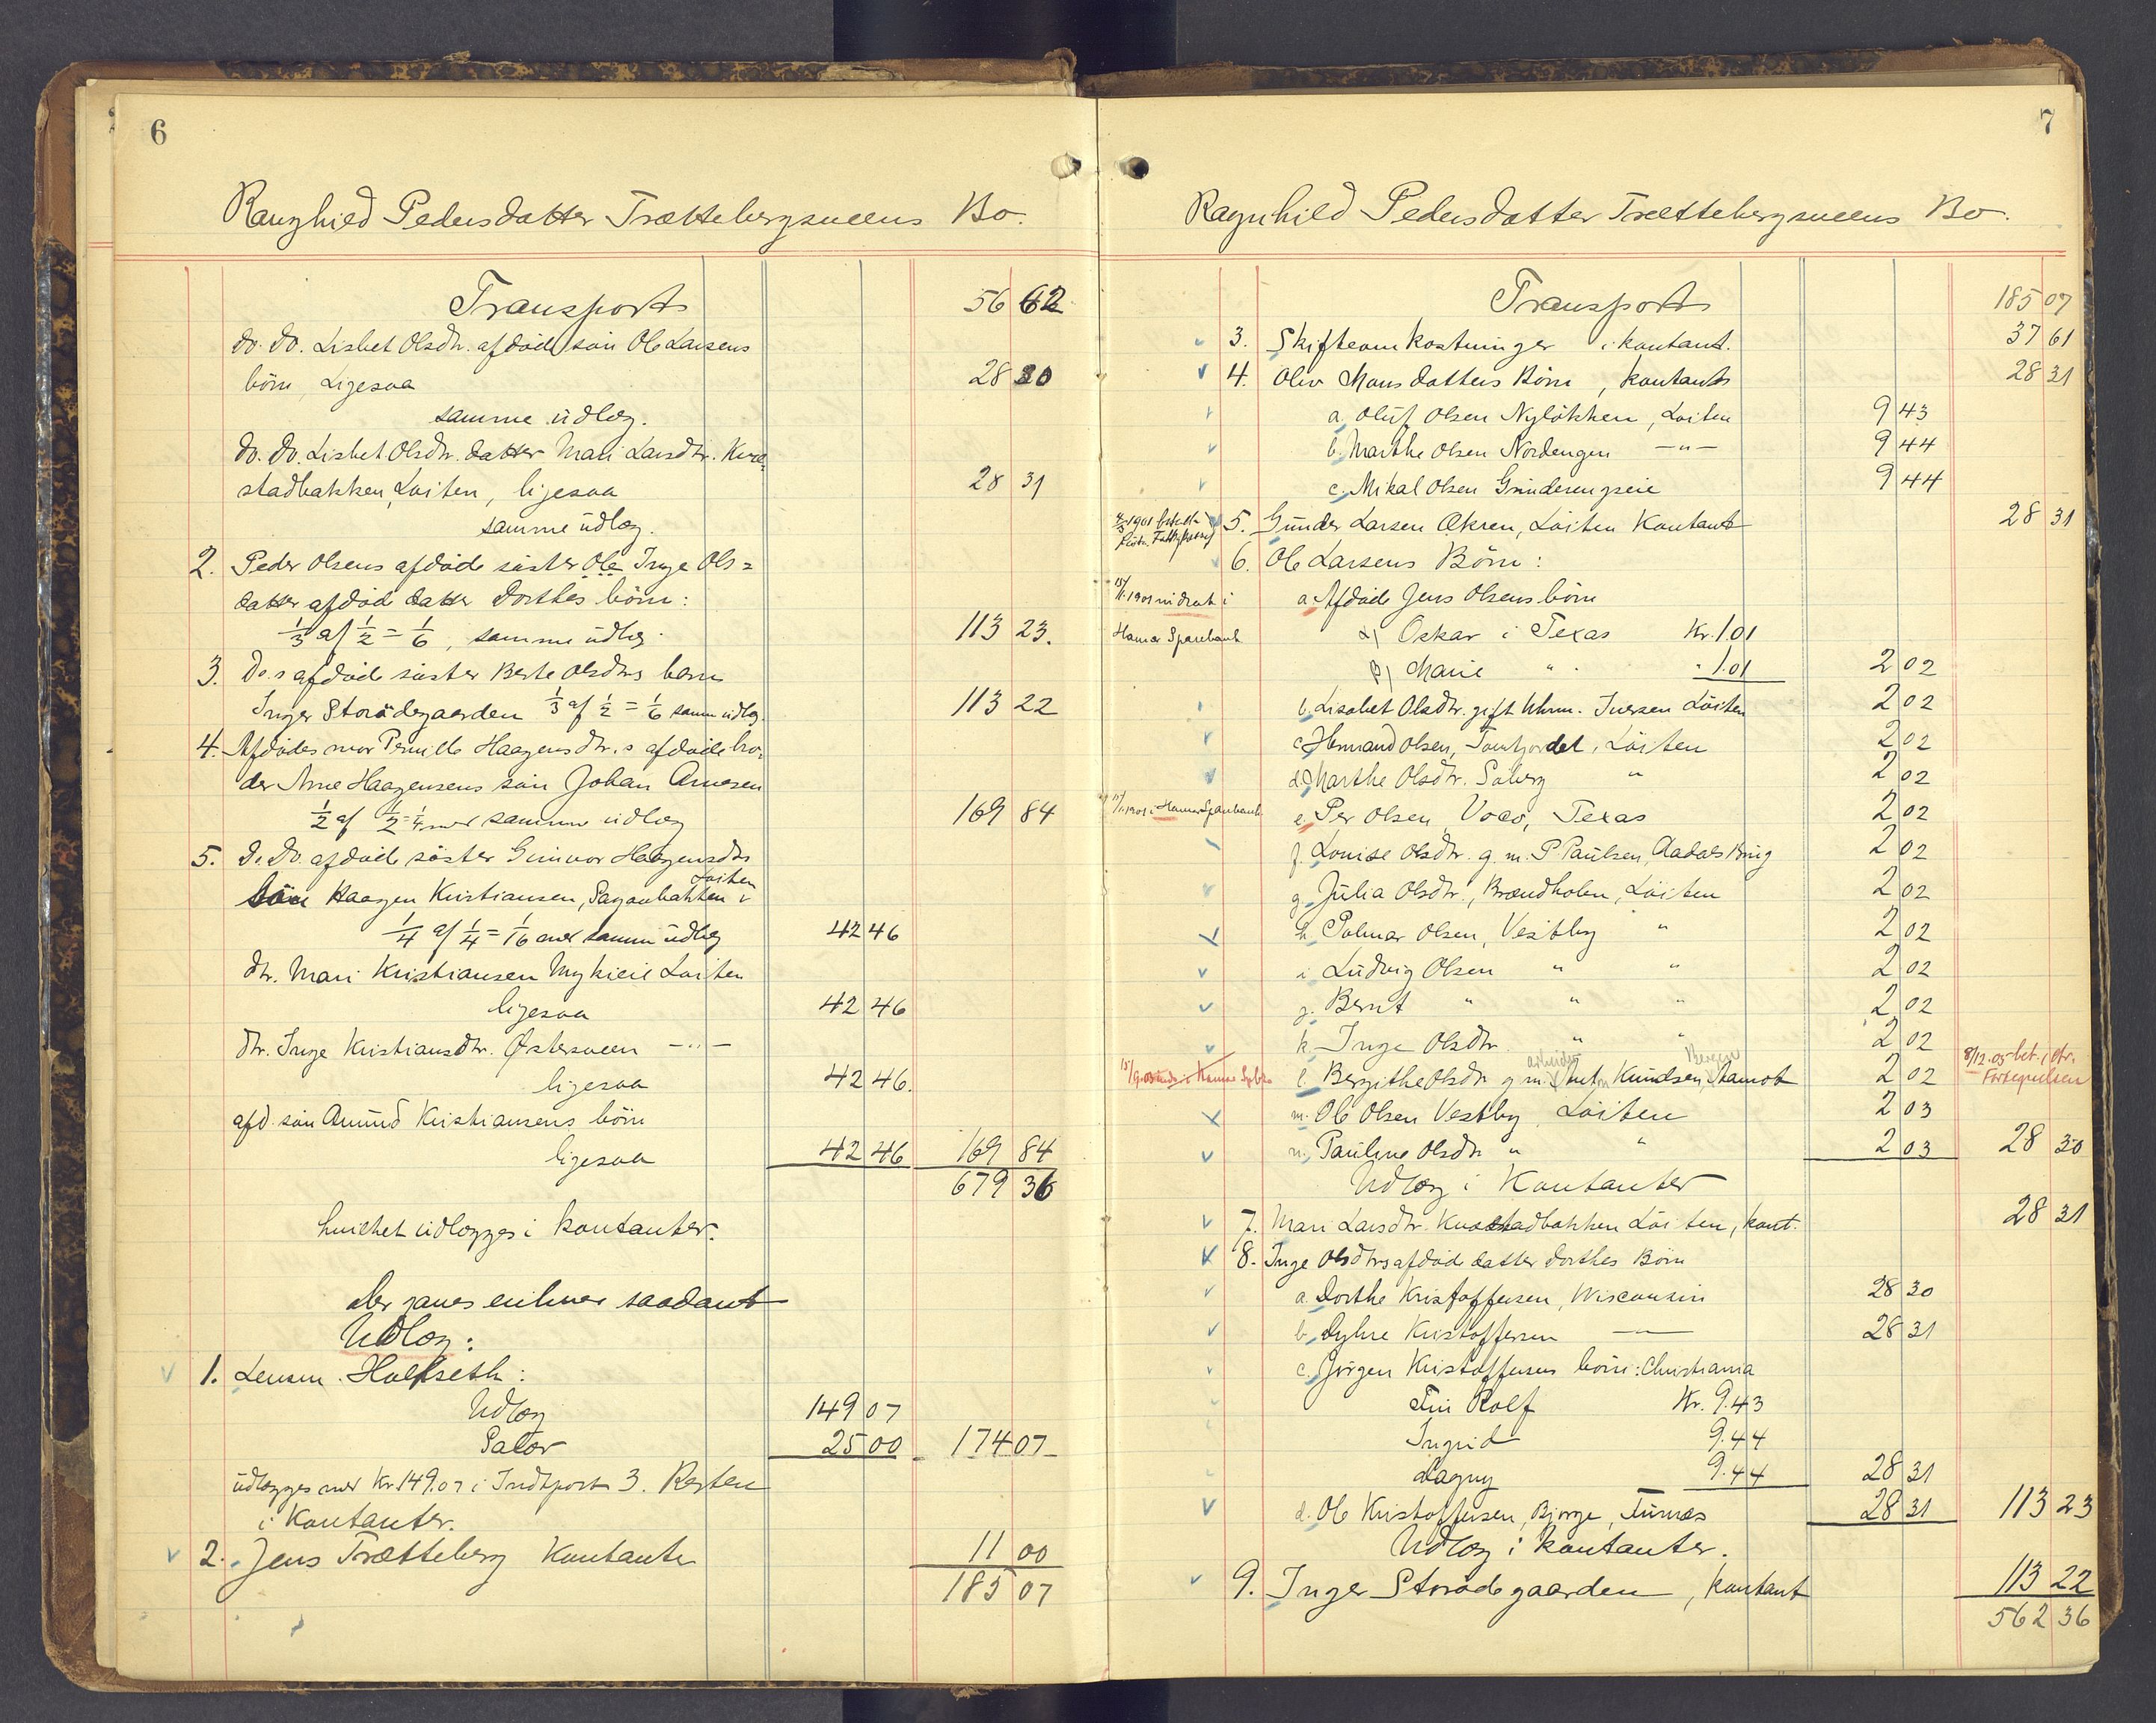 6
Ranghild Pedersdatter Trættebergsveens Bo.
Transport 56 62
do. do. Lisbet Olsdtr. afdöde sön Ole Larsens
börn, Ligesaa 28 30
samme udlæg.
do. do. Lisbet Olsdtr. datter Mari Larsdtr. Kvæ-
stadbakken, Löiten, ligesaa 28 31
samme udlæg.
2. Peder Olsens afdöde söster Ole Inge Ols=
datter afdöd datter Dorthes börn:
1/3 af 1/2 = 1/6, samme udlæg. 113 23.
3. Do.s afdöde söster Berte Olsdtrs barn
Inger Storödegaarden 1/3 af 1/2 = 1/6 samme udlæg. 113 22
4. Afdödes mor Pernille Haagensdtr.s afdöde bro-
der Arne Haagensens sön Johan Arnesen
1/2 af 1/2 = 1/4 med samme udlæg 169 84
5. Do. Do. afdöde söster Gunvor Haagensdtrs
sön Haagen Kristiansen, Paganbakken i Löiten
1/4 af 1/4 = 1/16 med samme udlæg 42 46
dtr. Mari Kristiansen Mykleie Löiten
ligesaa 42 46
dtr. Inge Kristiansdtr. Østersveen — " —
ligesaa 42 46.
afd. sön Amund Kristiansens börn
ligesaa 42 46 169 84
679 36
hvilket udlægges i kontanter.
Der gaves enhver saadant
Udlæg:
1. Lensm. Holtseth:
Udlæg 149 07
Salær 25 00 174 07
udlægges med Kr. 149.07 i Indtpost 3. Resten
i Kontanter.
2. Jens Trætteberg Kontanter 11 00
185 07
7
Ragnhild Pedersdatter Trættebergsveens Bo.
Transport 185 07
3. Skifteomkostninger i kontant. 37 61
4. Oliv Monsdatters Börn, kontant 28 31
a, Oluf Olsen Nylökken, Löiten 9 43
b. Marthe Olsen Nordengen — " — 9 44
c. Mikal Olsen Grinderengseie 9 44
5. Gunder Larsen Økren, Löiten Kontant 28 31
6. Ole Larsens Börn:
15/11.1901 indsat i a. Afdöde Jens Olsens börn
Hamar Sparebank α) Oskar i Texas Kr. 1.01
β) Marie " " 1.01 2 02
b. Lisabet Olsdtr. gift Iversen Löiten 2 02
c. Hermand Olsen, Tomtjordet, Löiten 2 02
d. Marthe Olsdtr. Soberg " 2 02
i Hamar Sparebank e. Per Olsen, Voco, Texas 2 02
f. Louise Olsdtr. g. m. P. Paulsen, Aadals Brug 2 02
g. Julia Olsdtr., Brændholen, Löiten 2 02
h. Palmar Olsen, Vestby " 2 02
i. Ludvig Olsen " " 2 02
j. Bernt " " " 2 02
k. Inge Olsdtr. " " 2 02
l. Bergithe Olsdtr g. m. arbeider Ant. Knudsen, Bergen Aamot 2 02 8/12.05 bet. i Forseglelsen
m. Ole Olsen Vestby, Löiten 2 03
n. Pauline Olsdtr " " 2 03 28 30
Udlæg i Kontanter
7. Mari Larsdtr. Kvæstadbakken Löiten, kont. 28 31
8. Inge Olsdtrs afdöde datter Dorthes Börn
a. Dorthe Kristoffersen, Wisconsin 28 30
b. Dyhre Kristoffersen — 28 31
c. Jörgen Kristoffersens börn: Christiania
Fin Rolf Kr. 9.43
Ingrid 9.44
Dagny 9.44 28 31
d. Ole Kristoffersen, Bjørge, Furnæs 28 31 113 23
Udlæg i kontanter.
9. Inger Storödegaarden, kontant 113 22
562 36